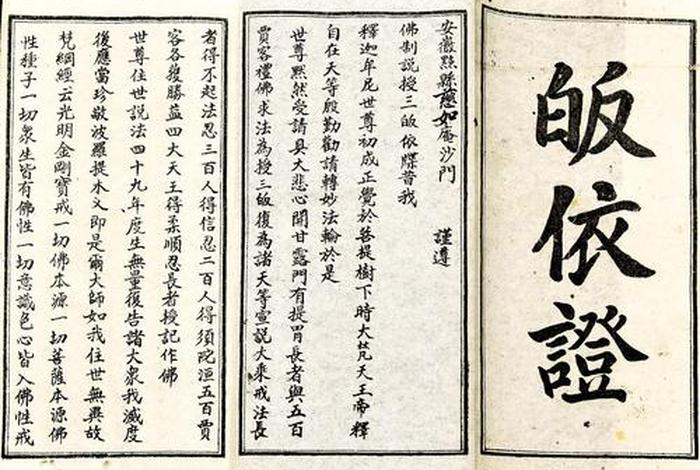 皈依證
安徽黟縣慈如庵沙門　謹遵
佛制説授三皈依牒昔我
釋迦牟尼世尊初成正覺於菩提樹下時大梵天王帝釋
自在天等殷勤勸請轉妙法輪於是
世尊默然受請具大悲心開甘露門有提胃長者與五百
賈客禮佛求法為授三皈復為諸天等宣説大乘戒法長
者得不起法忍三百人得信忍二百人得須陀洹五百賈
客各獲勝益四大天王得柔順忍長者授記作佛
世尊住世説法四十九年度生無量復告諸大衆我滅度
後應當珍敬波羅提木义即是爾大師如我住世無異故
梵綱經云光明金剛寶戒一切佛本源一切菩薩本源佛
性種子一切衆生皆有佛性一切意識色心皆入佛性戒